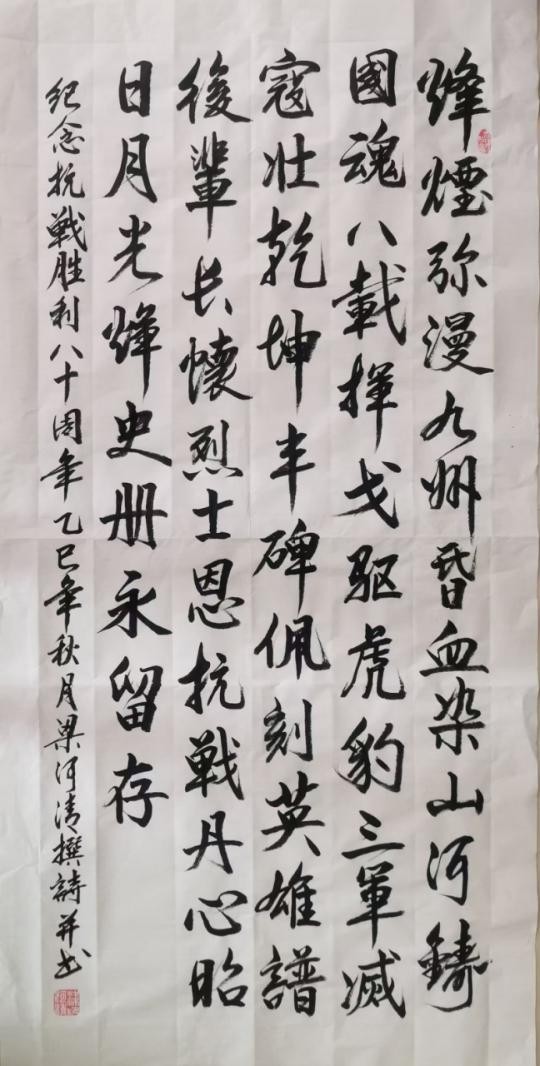 烽煙弥漫九州昏血染山河鑄
國魂八載揮戈驱虎豹三軍滅
寇壮乾坤丰碑佩刻英雄譜
後輩长懷烈士恩抗戰丹心昭
日月光輝史册永留存
纪念抗戰胜利八十周年乙巳年秋月梁河清撰詩并书